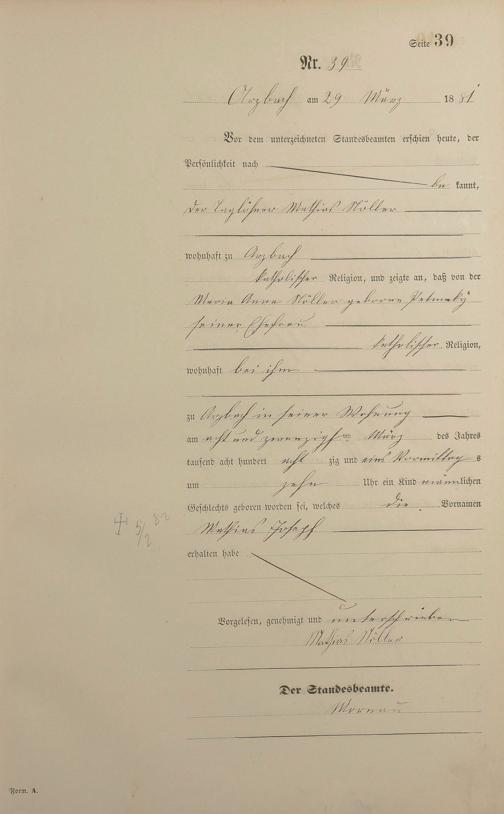 Seite 39
Nr. 39
Arzbach am 29 März 1881
Vor dem unterzeichneten Standesbeamten erschien heute, der
Persönlichkeit nach
be kannt,
der Taglöhner Mathias Nöller
wohnhaft zu Arzbach
katholischer Religion, und zeigte an, daß von der
Maria Anna Nöller geborene
seiner Ehefrau
katholischer Religion,
wohnhaft bei ihm
zu Arzbach in seiner Wohnung
am acht und zwanzigsten März des Jahres
tausend acht hundert acht zig und eins Vormittag s
um zehn Uhr ein Kind männlichen
Geschlechts geboren worden sei, welches die Vornamen
Mathias Joseph
erhalten habe
Vorgelesen, genehmigt und unterschrieben
Mathias Nöller
Der Standesbeamte.
† 5/2 82
Form. A.